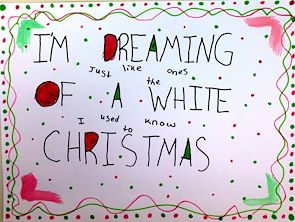 I'M DREAMING
Just like ones
OF A WHITE
the
I used to know
CHRISTMAS